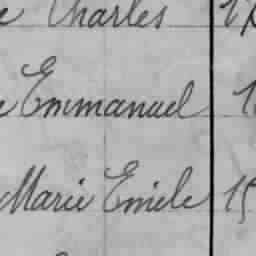 e Charles
e Emmanuel 1
Marie Emile 15